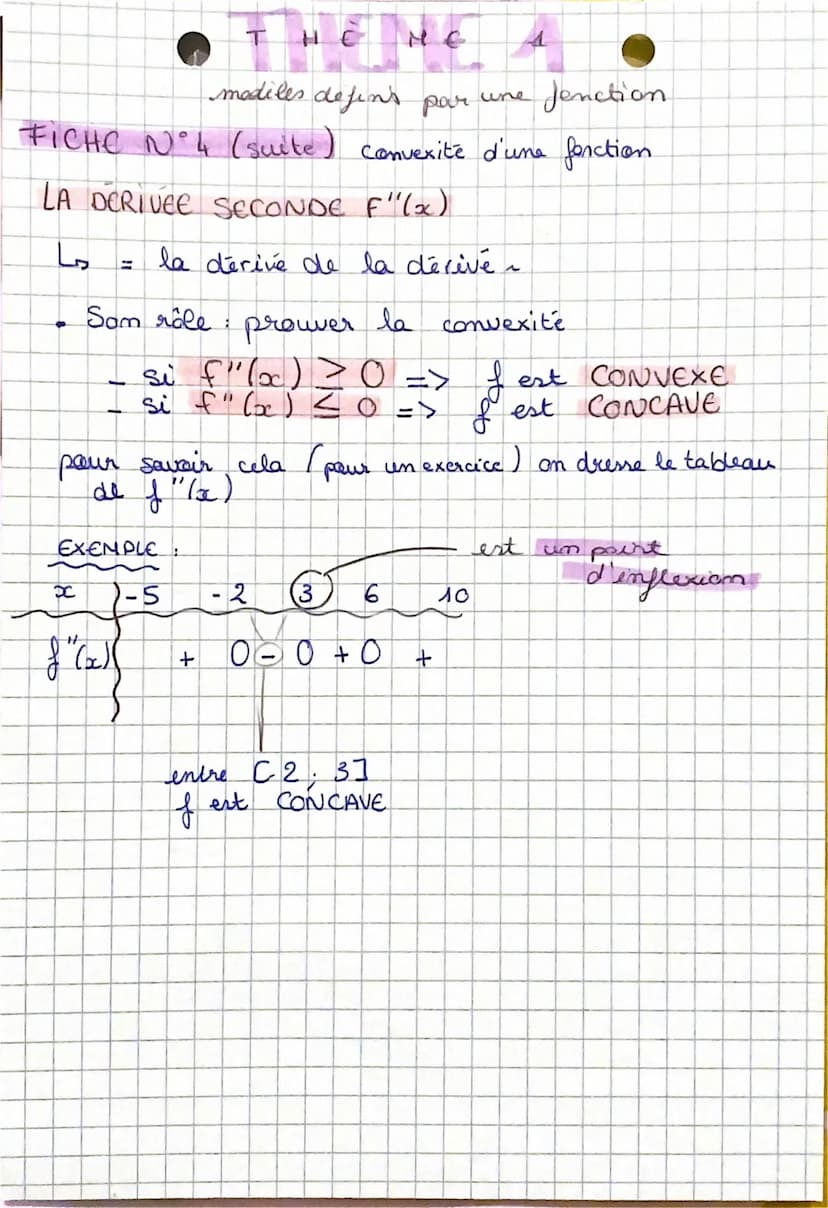 THÈME 1
modèles définis par une fonction
FICHE N°4 (suite) convexité d'une fonction
LA DÉRIVÉE SECONDE F''(x)
↳ = la dérivé de la dérivé ~
• Son rôle : prouver la convexité
- si f''(x) ≥ 0 => f est CONVEXE
- si f''(x) ≤ 0 => f est CONCAVE
pour savoir cela (pour un exercice) on dresse le tableau
de f''(x)
EXEMPLE : est un point
d'inflexion
x -5 -2 3 6 10
f''(x) + 0 - 0 + 0 +
entre [2 ; 3]
f est CONCAVE